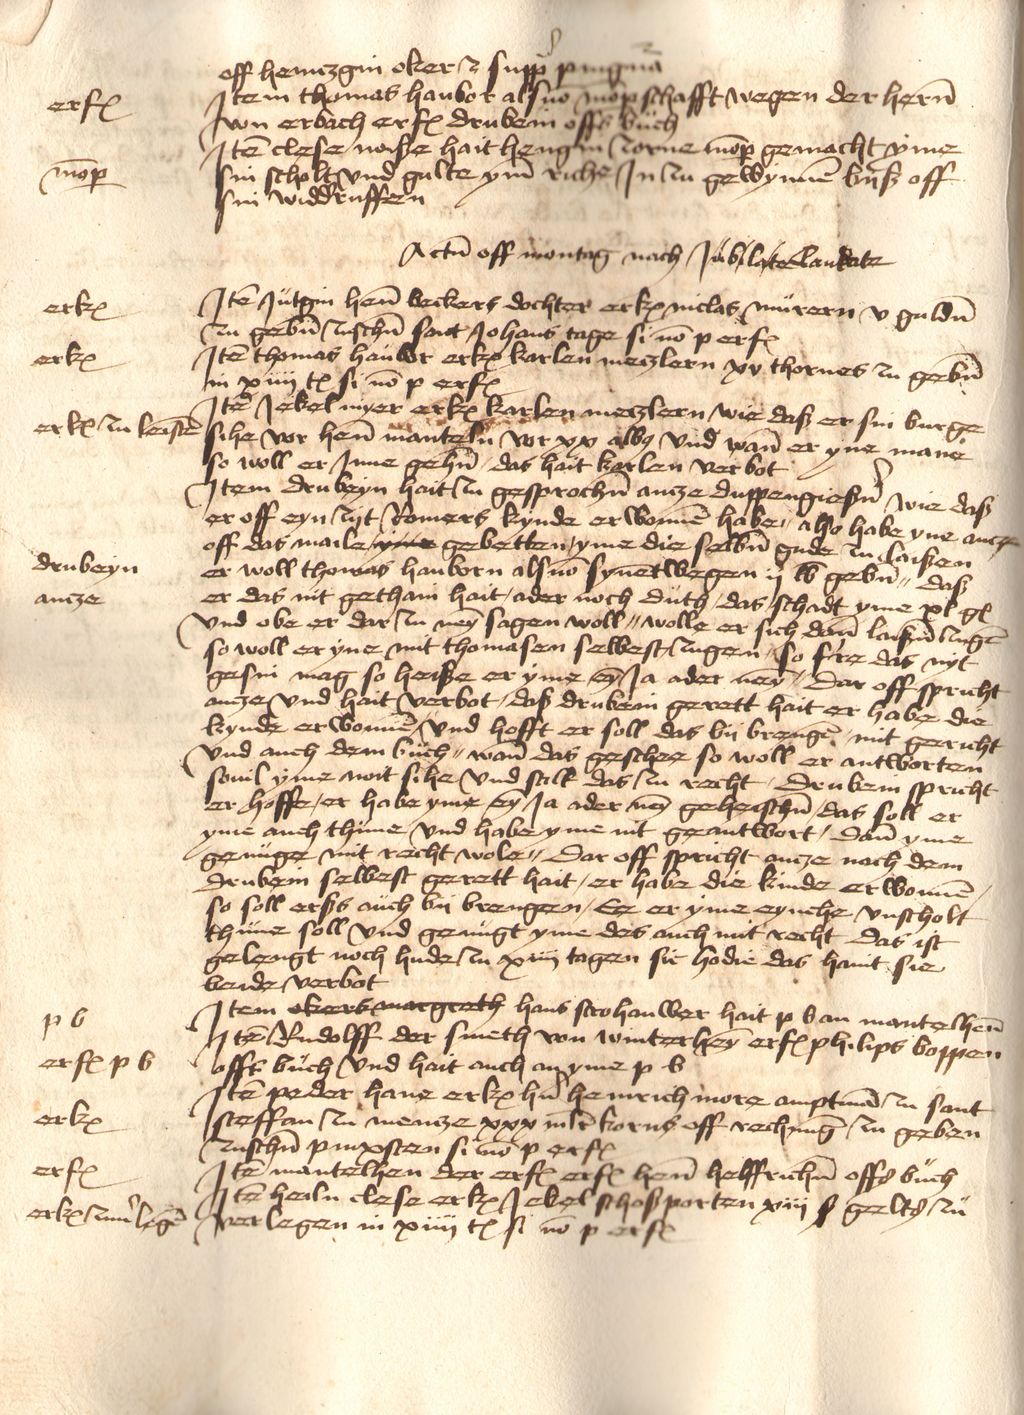 off henczgin oker et supra pingnora
erf(x) Item thomas hanbor als von momperschafft wegen der hern
von erbach erf(x) drubein offs buch
momp(er) Itē clese noiße hait hengin dorne momp(er) gemacht yme
sin scholt und gulte ym riche In zu gewynnē biß off
sin widdruffen
Actū off montag nach Jubilate laudate
erk(x) Itē Jutgin henn beckers dochter erk(x) niclas murern v guldū
zu gebū zuschū sant Johans tage si nō p erf(x)
erk(x) Itē thomas hanbor erk(x) karlen meczlern xv thornes zu gebū
in xiiii t(x) si nō p erf(x)
erk(x) zu leistē Itē Jekel myer erk(x) karlen meczlern wie daß er sin burge
sihe vor henn manteln vor xx albus und wañ er yne mane
so woll er Jnne gehū, das hait karlen verbot
Item drubeyn hait zu gesprochū ancze duppengießern wie daß
er off eyn zijt Romers kynde erwonnē habe, also habe yne ancze
off das maile gebetten, yme die selbū gude zu laißen,
drubeyn er woll thomas hanborn als von synetwegen ij lb gebū, daß
ancze er das nit gethain hait, ader noch duth, das schadt yme xl gl
und obe er dar zu neyn sagen woll, wolle er sich dañ laißū zugē
so woll er yne mit thomasen selbest zugen, so ferre das nyt
gesin mag so heiße er yme ey Ja ader neyn. Dar off spricht
ancze und hait verbot, daß drubein gerett hait er habe die
kynde erwonnē, und hofft er soll das bij brengē, mit gericht
und auch dem buch, wañ das geschee so woll er antworten
souil yme noit sihe und stalt das zu recht, Drubein spricht
er hoffe, er habe yme ey Ja ader neyn geheischū, das soll er
yme auch thune und habe yme nit geantwort, dañ yme
genuge mit recht wole, Dar off spricht ancze nach dem
drubein selbest gerett hait, er habe die kinde erwonnē,
so soll erßs auch bij brengen, Ee er yme eynche unscholt
thune soll und genugt yme des auch mit recht das ist
gelengt noch hude zu xiiii tagen sic hodie das haint sie
beide verbot
p b Item okers margreth hans strohauwer hait p b an mantelhenn
erf(x) p b Itē Rudolff der smeth von winterheym erf(x) philips boppen
offs buch und hait auch an yme p b
erk(x) Itē peder hane erk(x) hern heinrich more amptmā zu sant
steffan zu mencze xxx mlr korns off rechnung zu geben
zuschū pinxsten si nō p erf(x)
erf(x) Itē mantelhen der erf(x) erf(x) henn helffrichū offs buch
erk(x) zuu'legē Itē heiln clese erk(x) Jekel schoßporten xiiii ß gelts zu
verlegen in xiiii t(x) si nō p erf(x)